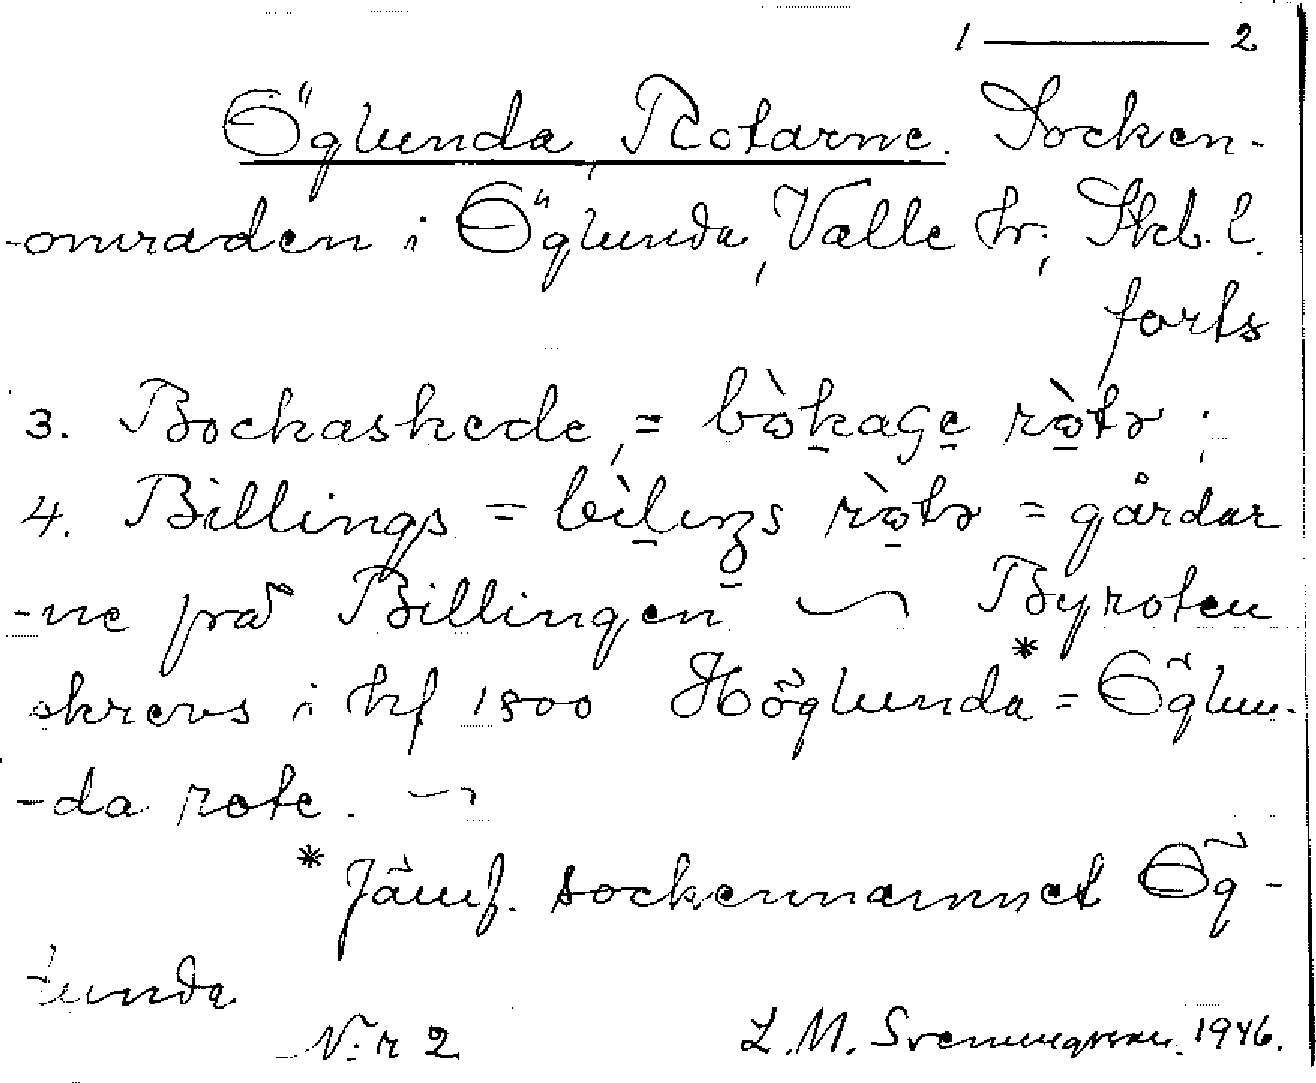 1 — 2
Öglunda, Rotarne. Socken-
-områden i Öglunda, Valle hr; Skb. l.
forts
3. Bockaskede, = bòkage ròtə ;
4. Billings = bìlıŋs ròtə = gårdar
-ne på Billingen ~ Byroten
skrevs i hf 1800 Höglunda* = Öglun-
-da rote. ~
* Jämf. sockennamnet Ög-
lunda
N:r 2 L. M. Svenungsson. 1946.